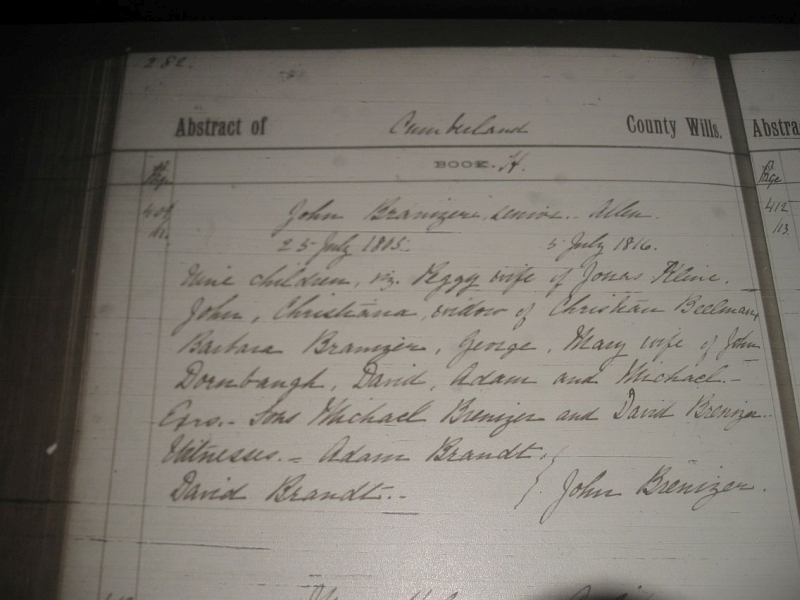 282.
Abstract of Cumberland County Wills.
BOOK. H.
Page
409 John Branizer, senior. - Allen.
25 July 1805. 5 July 1816.
Nine children, viz. Peggy wife of Jonas Kline.
John, Christiana, widow of Christian Beelman,
Barbara Branizer, George, Mary wife of John
Dornbaugh, David, Adam and Michael. -
Exrs. - Sons Michael Brenizer and David Brenizer.
Witnesses. - Adam Brandt.
David Brandt. - } John Brenizer.
Abstra
Page
412
/13.